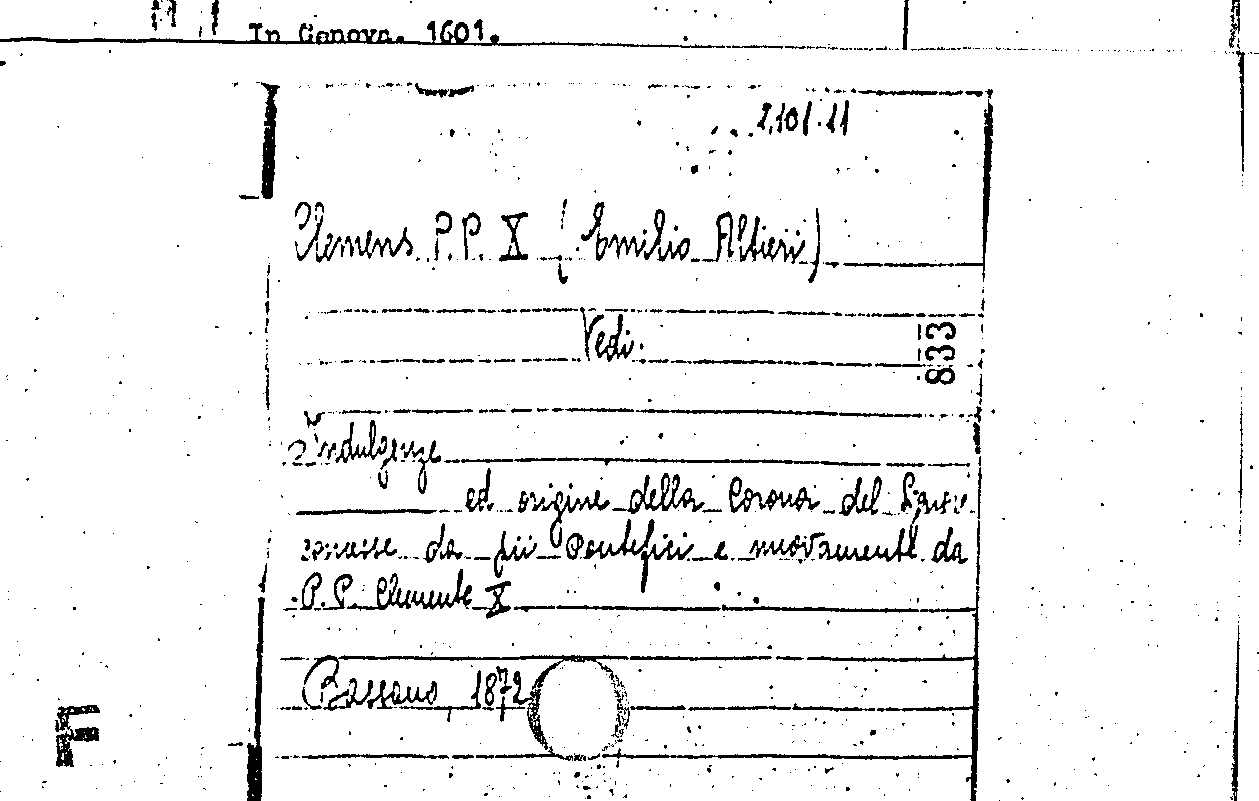 In Genova. 1601.
2,101.11
Clemens P.P. X (Emilio Altieri)
Vedi.
833
Indulgenze
ed origine della Corona del Signore
concesse da più Pontefici e nuovamente da
P.P. Clemente X
Bassano, 1872
F